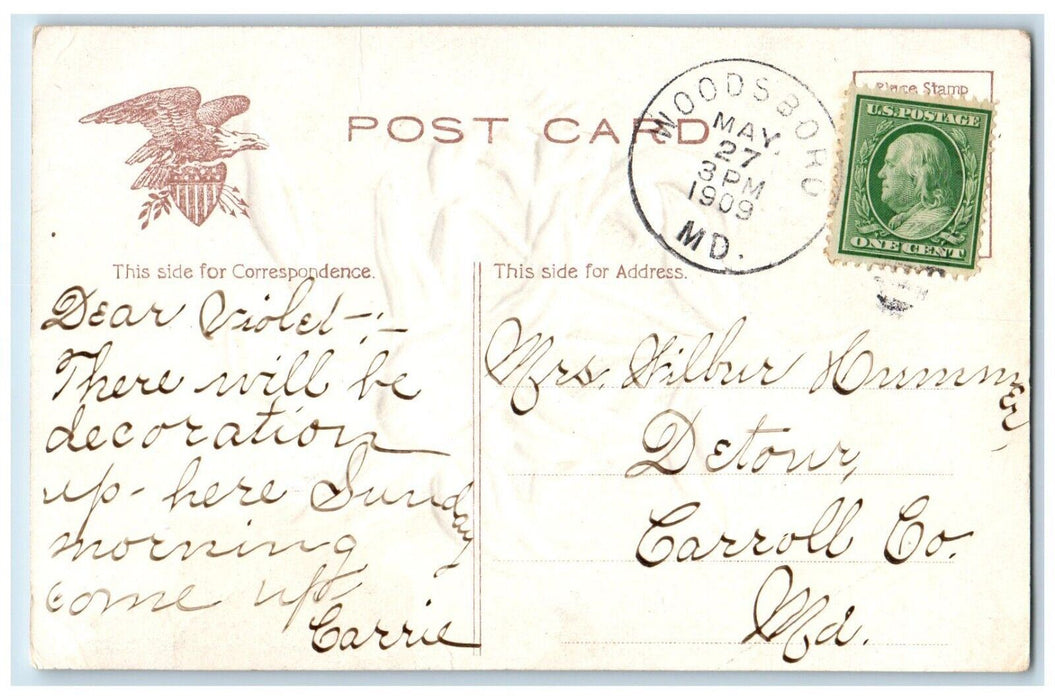 POST CARD
WOODSBORO
MAY
27
3 PM
1909
MD.
Place Stamp
U.S. POSTAGE
ONE CENT
This side for Correspondence.
Dear Violet:-
There will be
decoration
up- here Sunday
morning
come up
Carrie
This side for Address.
Mrs. Wilbur Hummer,
Detour,
Carroll Co.
Md.